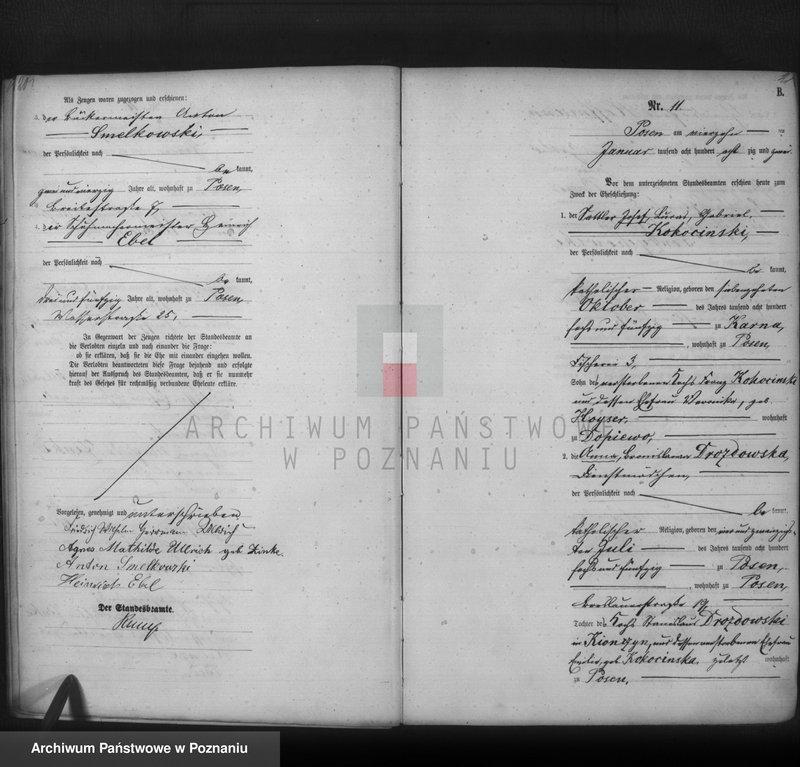 Als Zeugen waren zugezogen und erschienen:
3. der Bäckermeister Anton
Smelkowski,
der Persönlichkeit nach
be kannt,
zwei und vierzig Jahre alt, wohnhaft zu Posen
Breitestraße
4. der Schuhmachermeister Heinrich
Ebel
der Persönlichkeit nach
be kannt,
drei und fünfzig Jahre alt, wohnhaft zu Posen,
Wasserstraße 25,
In Gegenwart der Zeugen richtete der Standesbeamte an
die Verlobten einzeln und nach einander die Frage:
ob sie erklären, daß sie die Ehe mit einander eingehen wollen.
Die Verlobten beantworteten diese Frage bejahend und erfolgte
hierauf der Ausspruch des Standesbeamten, daß er sie nunmehr
kraft des Gesetzes für rechtmäßig verbundene Eheleute erkläre.
Vorgelesen, genehmigt und unterschrieben
Friedrich Wilhelm Herrmann Ullrich
Agnes Mathilde Ullrich geb. Zinke.
Anton Smelkowski
Heinrich Ebel
Der Standesbeamte.
B.
Nr. 11
Posen am vierzehn
Januar tausend acht hundert acht zig und zwei
Vor dem unterzeichneten Standesbeamten erschien heute zum
Zweck der Eheschließung:
1. der Sattler Josef, Lucas, Gabriel,
Kokocinski,
der Persönlichkeit nach
be kannt,
katholischer Religion, geboren den siebenzehnten
Oktober des Jahres tausend acht hundert
sechs und fünfzig zu Karna,
, wohnhaft zu Posen,
Fischerei 3,
Sohn des verstorbenen Kochs Franz Kokocinski
und dessen Ehefrau Veronika, geb.
Hoyser, wohnhaft
zu Dopiewo,
2. die Anna, Bronislawa Drozdowska,
Dienstmädchen,
der Persönlichkeit nach
be kannt,
katholischer Religion, geboren den vier und zwanzig-
sten Juli des Jahres tausend acht hundert
sechs und fünfzig zu Posen,
, wohnhaft zu Posen,
Breslauerstraße 19,
Tochter des Kochs Stanislaus Drozdowski
in und dessen verstorbenen Ehefrau
geb. Kokocinska, zuletzt wohnhaft
zu Posen,
ARCHIWUM PAŃSTWOWE
W POZNANIU
Archiwum Państwowe w Poznaniu